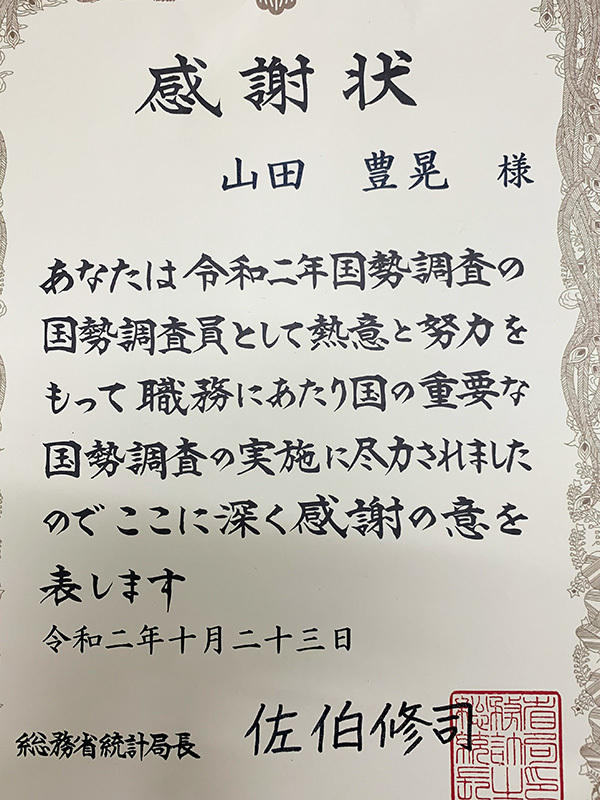 感謝状
山田 豊晃 様
あなたは令和二年国勢調査の
国勢調査員として熱意と努力を
もって職務にあたり国の重要な
国勢調査の実施に尽力されました
のでここに深く感謝の意を
表します
令和二年十月二十三日
総務省統計局長 佐伯修司